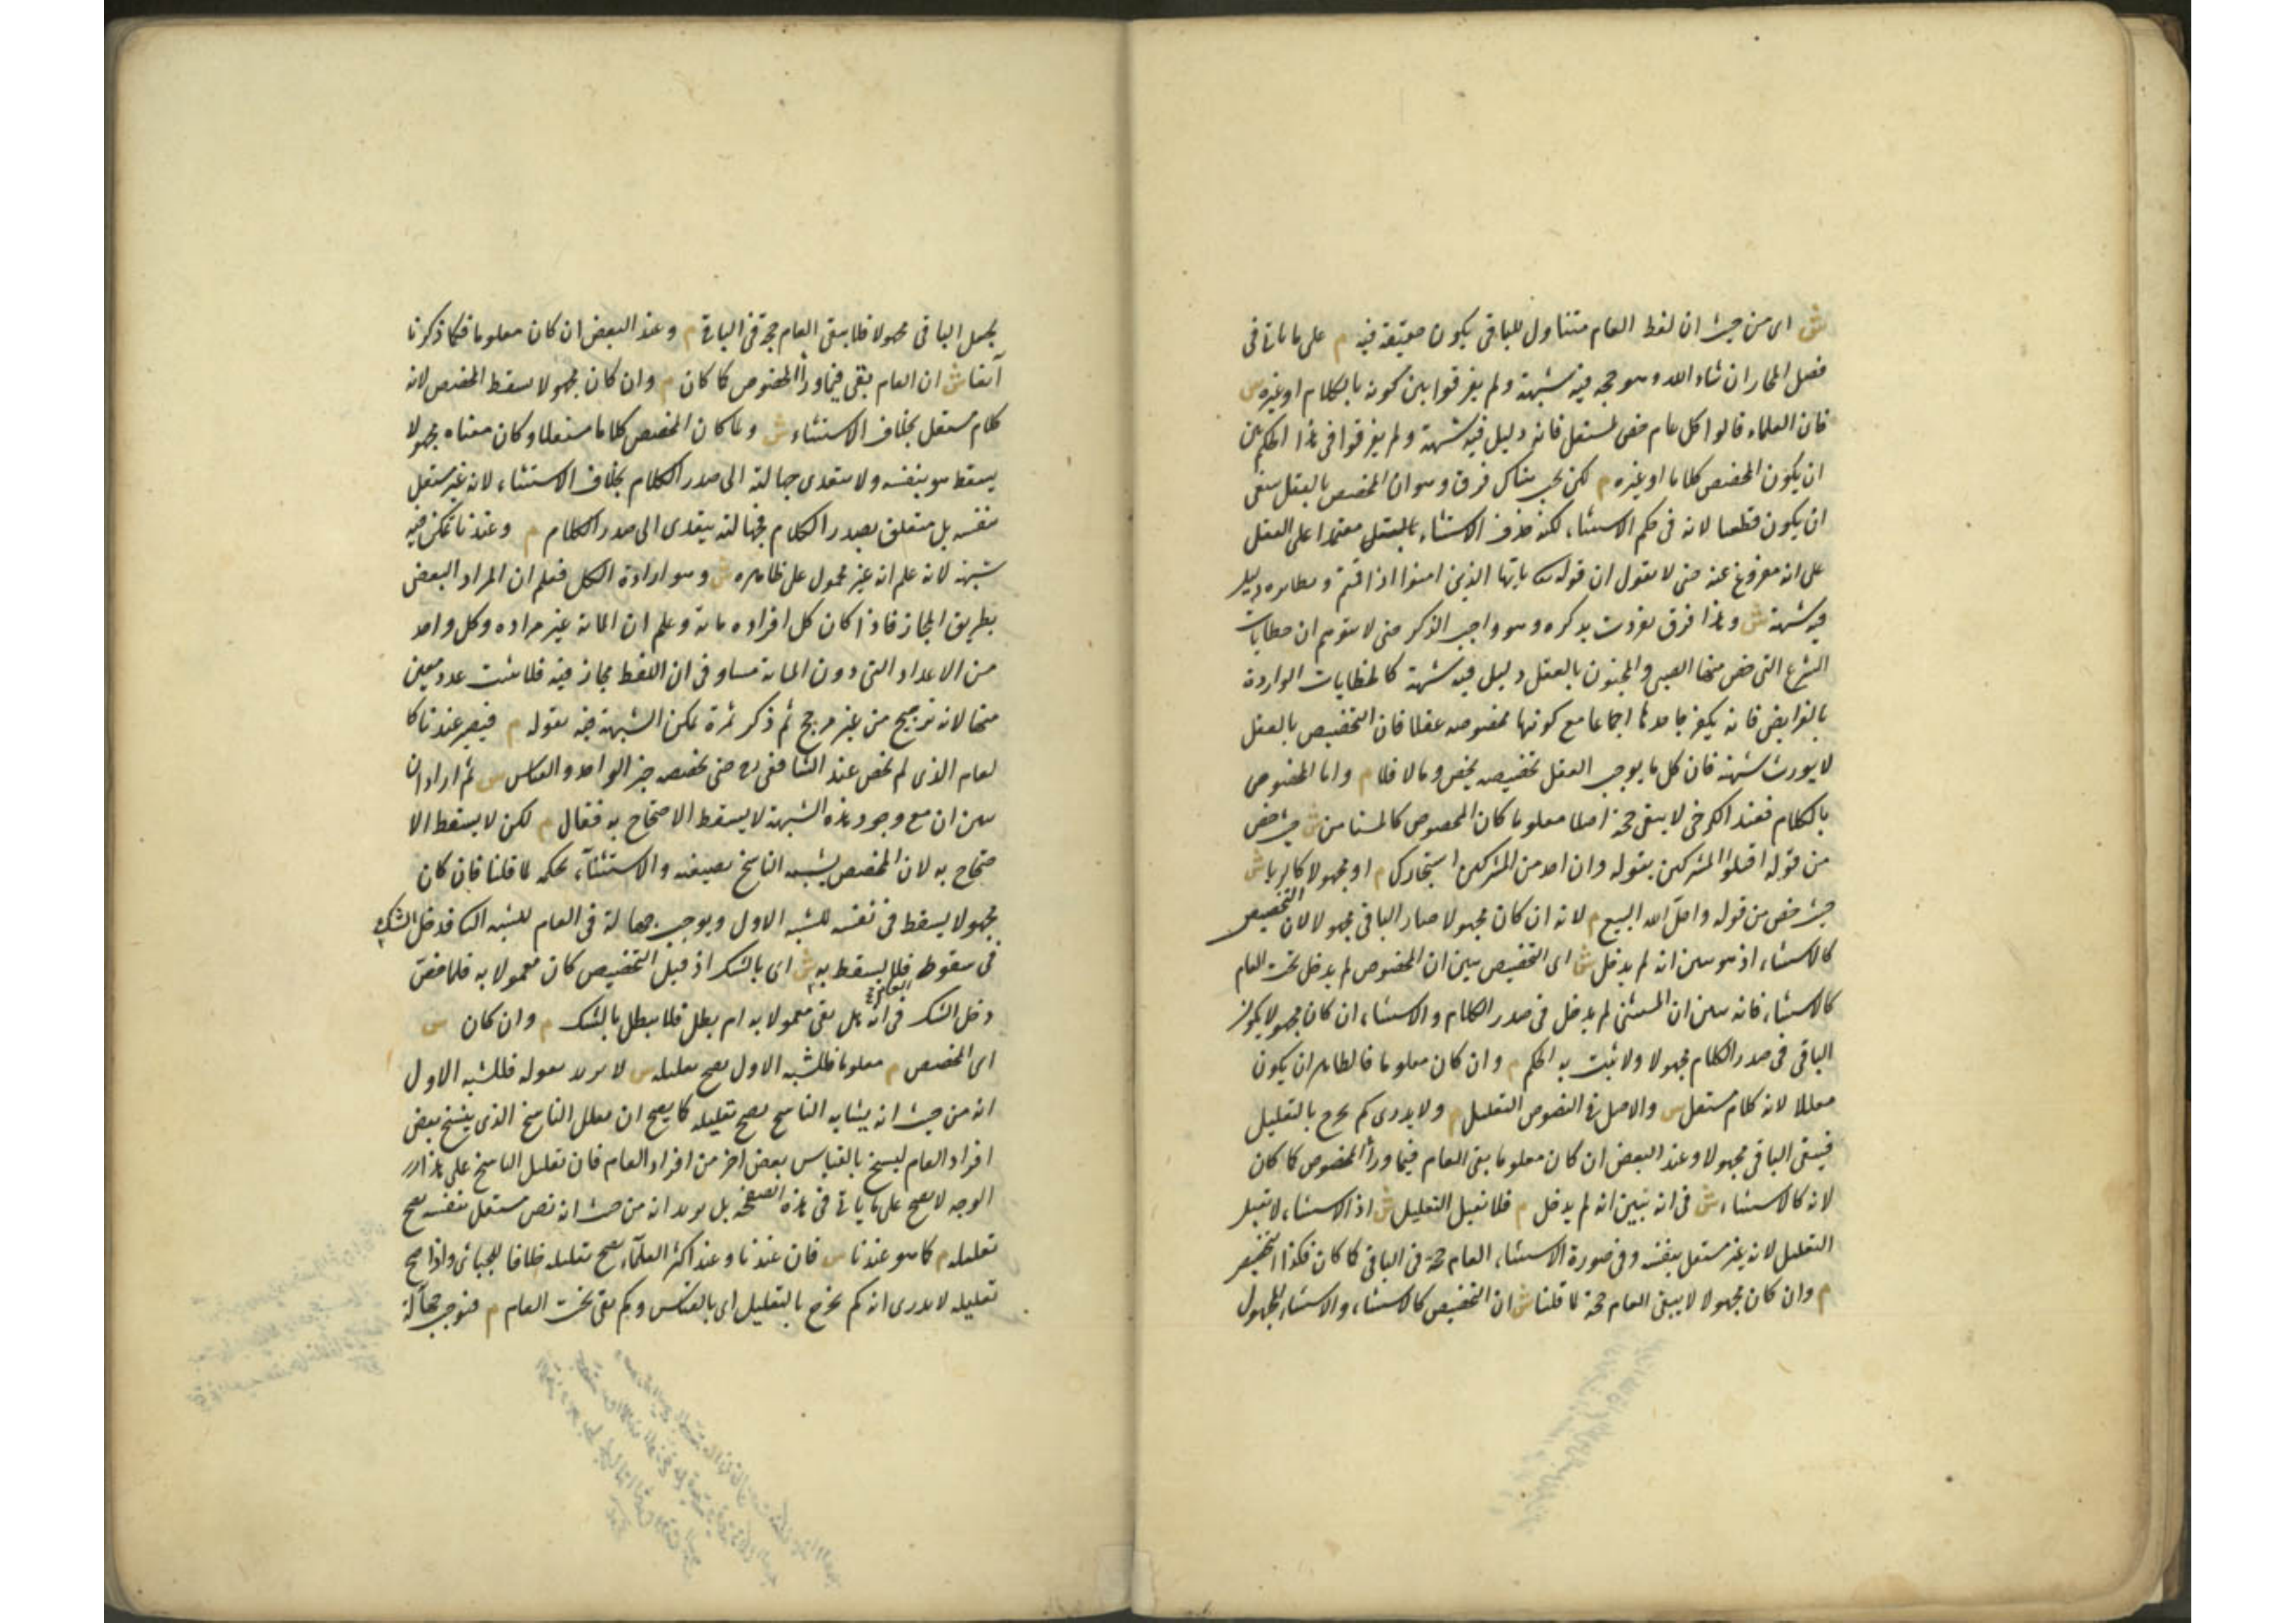 ش اى من حيث ان لفظ العام متناول للباقى يكون حقيقة فيه م على ما ياتى فى
فصل المجاز ان شاء الله وهو حجة فيه شبهة ولم يفرقوا بين كونه بالكلام او غيره ش
فان العلماء قالوا كل عام خص بمستقل فانه دليل فيه شبهة ولم يفرقوا فى هذا الحكم بين
ان يكون المخصص كلاما او غيره م لكن يجب هناك فرق وهو ان المخصص بالعقل ينبغى
ان يكون قطعيا لانه فى حكم الاستثناء لكنه حذف الاستثناء بالعقل معتمدا على العقل
على انه مفروغ عنه حتى لا نقول ان قوله تع يا ايها الذين امنوا اذا قمتم ونظايره دليل
فيه شبهة ش وهذا فرق تفردت بذكره وهو واجب الذكر حتى لا يتوهم ان خطابات
الشرع التى خص منها الصبى والمجنون بالعقل دليل فيه شبهة كالخطابات الواردة
بالفرايض فانه يكفر جاحدها اجماعا مع كونها مخصوصه عقلا فان التخصيص بالعقل
لا يورث شبهة فان كل ما يوجب العقل تخصيصه يخص وما لا فلا م واما المخصوص
بالكلام فعند الكرخى لا يبقى حجة اصلا معلوما كان المخصوص كالمستامن ش حيث خص
من قوله اقتلوا المشركين بقوله وان احد من المشركين استجارك م او مجهولا كالربا ش
حيث خص من قوله واحل الله البيع م لانه ان كان مجهولا صار الباقى مجهولا لان التخصيص
كالاستثناء اذ هو يبين انه لم يدخل ش اى التخصيص يبين ان المخصوص لم يدخل تحت العام
كالاستثناء فانه يبين ان المستثنى لم يدخل فى صدر الكلام والاستثناء ان كان مجهولا يكون
الباقى فى صدر الكلام مجهولا ولا يثبت به الحكم م وان كان معلوما فالظاهر ان يكون
معللا لانه كلام مستقل ش والاصل فى النصوص التعليل م ولا يدرى كم يخرج بالتعليل
فيبقى الباقى مجهولا وعند البعض ان كان معلوما بقى العام فيما وراء المخصوص كما كان
لانه كالاستثناء ش فى انه يبين انه لم يدخل م فلا يقبل التعليل ش اذ الاستثناء لا يقبل
التعليل لانه غير مستقل بنفسه وفى صورة الاستثناء العام حجة فى الباقى كما كان فكذا التخصيص
م وان كان مجهولا لا يبقى العام حجة لما قلنا ش ان التخصيص كالاستثناء والاستثناء المجهول
يجعل الباقى مجهولا فلا يبقى العام حجة فى الباقى م وعند البعض ان كان معلوما فكما ذكرنا
آنفا ش ان العام بقى فيما وراء المخصوص كما كان م وان كان مجهولا يسقط المخصص لانه
كلام مستقل بخلاف الاستثناء ش ولما كان المخصص كلاما مستقلا وكان معناه مجهولا
يسقط هو بنفسه ولا يتعدى جهالته الى صدر الكلام بخلاف الاستثناء لانه غير مستقل
بنفسه بل متعلق بصدر الكلام فجهالته يتعدى الى صدر الكلام م وعندنا تمكن فيه
شبهة لانه علم انه غير محمول على ظاهره ش وهو ارادة الكل فعلم ان المراد البعض
بطريق المجاز فاذا كان كل افراده مائة وعلم ان المائة غير مراده وكل واحد
من الاعداد التى دون المائة مساو فى ان اللفظ مجاز فيه فلا يثبت عدد معين
منها لانه ترجيح من غير مرجح ثم ذكر ثمرة تمكن الشبهة فيه بقوله م فيصير عندنا كا
لعام الذى لم يخص عند الشافعى رح حتى يخصصه خبر الواحد والقياس ش ثم اراد ان
يبين ان مع وجود هذه الشبهة لا يسقط الاحتجاج به فقال م لكن لا يسقط الا
حتجاج به لان المخصص يشبه الناسخ بصيغته والاستثناء بحكمه لما قلنا فان كان
مجهولا يسقط فى نفسه للشبه الاول ويوجب جهالة فى العام للشبه الثا فدخل الشك
فى سقوطه فلا يسقط به ش اى بالشك اذ قبل التخصيص كان معمولا به فلما خص
دخل الشك فى انه هل بقى معمولا به ام بطل فلا يبطل بالشك م وان كان ش
اى المخصص م معلوما فللشبه الاول يصح تعليله ش لا يريد بقوله فللشبه الاول
انه من حيث انه يشابه الناسخ يصح تعليله كما يصح ان يعلل الناسخ الذى ينسخ بعض
افراد العام لينسخ بالقياس بعض اخر من افراد العام فان تعليل الناسخ على هذا
الوجه لا يصح على ما ياتى فى هذه الصفحة بل يريد انه من حيث انه نص مستقل بنفسه يصح
تعليله م كما هو عندنا ش فان عندنا وعند اكثر العلماء يصح تعليله خلافا للجبائى واذا صح
تعليله لا يدرى انه كم يخرج بالتعليل اى بالقياس وكم بقى تحت العام م فيوجب جهالة